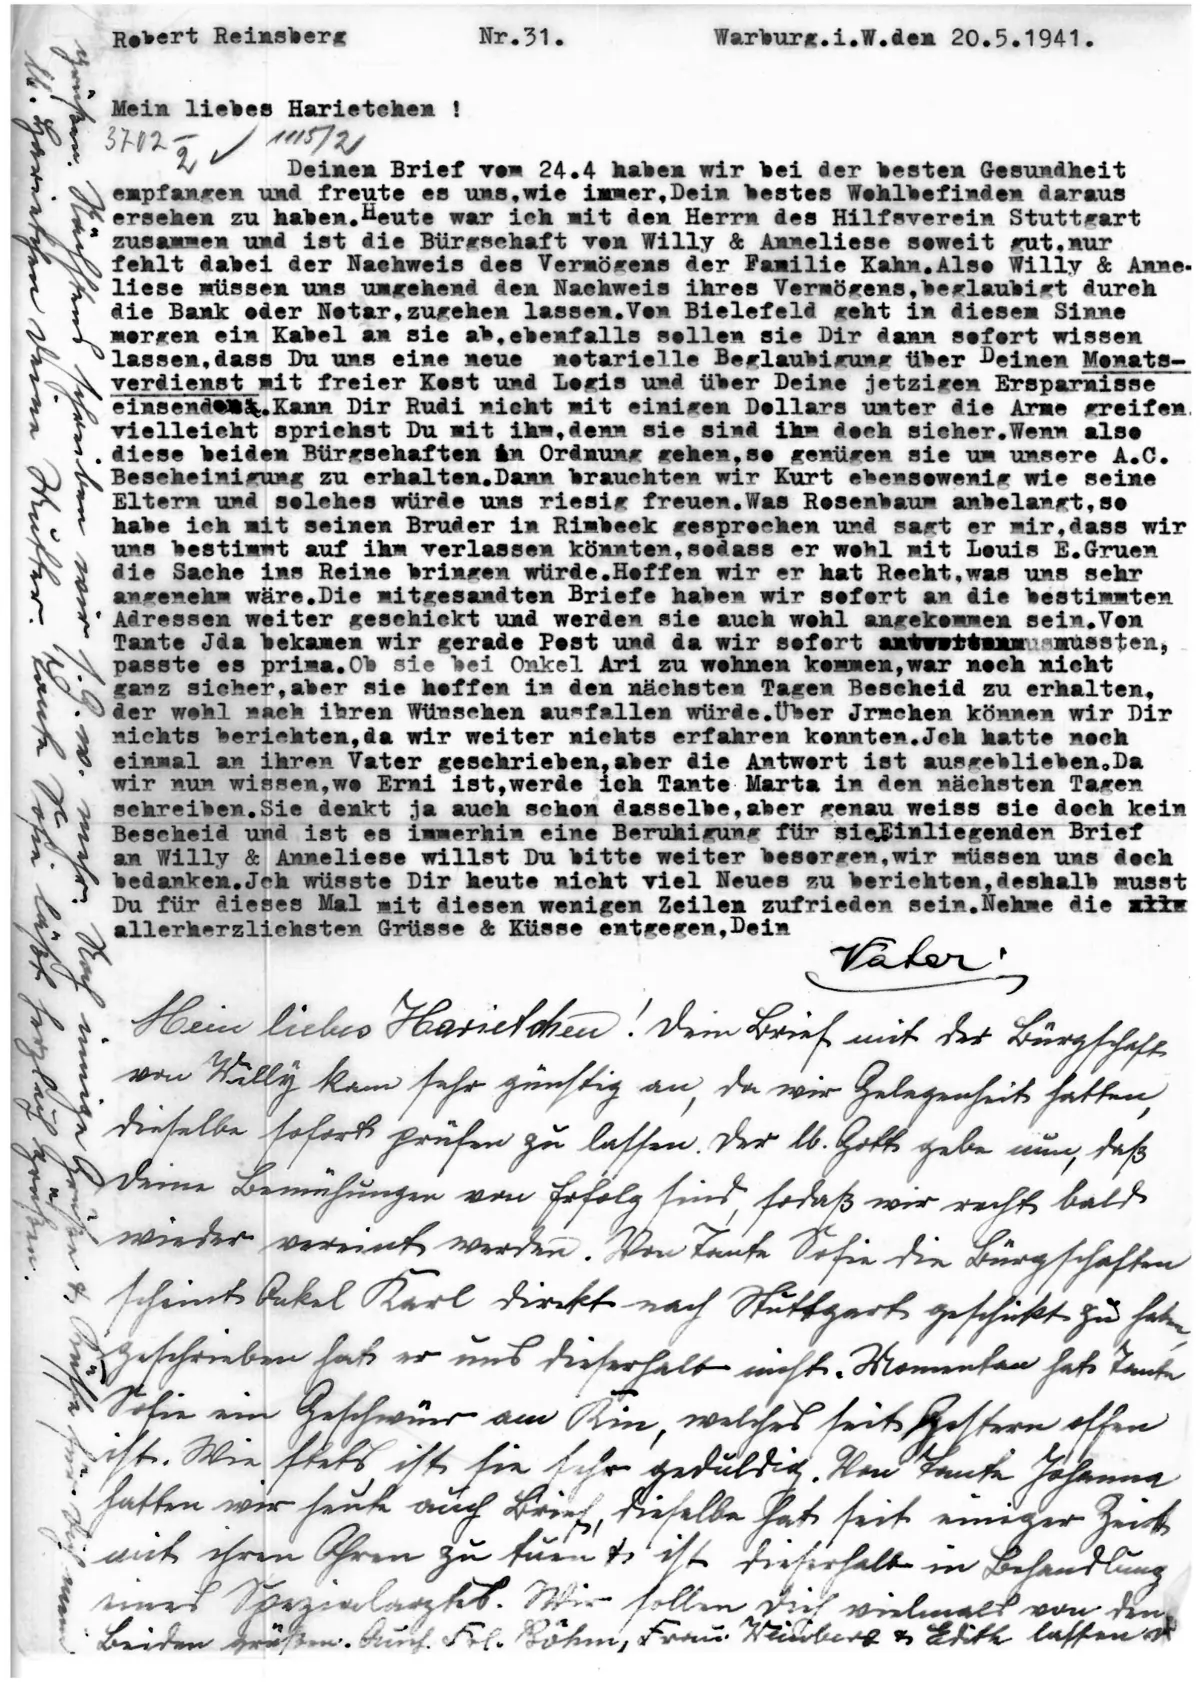 Robert Reinsberg Nr.31. Warburg.i.W.den 20.5.1941.
Mein liebes Harietchen !
3702 1115/2
Deinen Brief vom 24.4 haben wir bei der besten Gesundheit
empfangen und freute es uns,wie immer,Dein bestes Wohlbefinden daraus
ersehen zu haben.Heute war ich mit den Herrn des Hilfsverein Stuttgart
zusammen und ist die Bürgschaft von Willy & Anneliese soweit gut,nur
fehlt dabei der Nachweis des Vermögens der Familie Kahn.Also Willy & Anne-
liese müssen uns umgehend den Nachweis ihres Vermögens,beglaubigt durch
die Bank oder Notar,zugehen lassen.Von Bielefeld geht in diesem Sinne
morgen ein Kabel an sie ab,ebenfalls sollen sie Dir dann sofort wissen
lassen,dass Du uns eine neue notarielle Beglaubigung über Deinen Monats-
verdienst mit freier Kost und Logis und über Deine jetzigen Ersparnisse
einsendest.Kann Dir Rudi nicht mit einigen Dollars unter die Arme greifen
vielleicht sprichst Du mit ihm,denn sie sind ihm doch sicher.Wenn also
diese beiden Bürgschaften in Ordnung gehen,so genügen sie um unsere A.C.
Bescheinigung zu erhalten.Dann brauchten wir Kurt ebensowenig wie seine
Eltern und solches würde uns riesig freuen.Was Rosenbaum anbelangt,so
habe ich mit seinen Bruder in Rimbeck gesprochen und sagt er mir,dass wir
uns bestimmt auf ihm verlassen könnten,sodass er wohl mit Louis E.Gruen
die Sache ins Reine bringen würde.Hoffen wir er hat Recht,was uns sehr
angenehm wäre.Die mitgesandten Briefe haben wir sofort an die bestimmten
Adressen weiter geschickt und werden sie auch wohl angekommen sein.Von
Tante Jda bekamen wir gerade Post und da wir sofort mussten,
passte es prima.Ob sie bei Onkel Ari zu wohnen kommen,war noch nicht
ganz sicher,aber sie hoffen in den nächsten Tagen Bescheid zu erhalten,
der wohl nach ihren Wünschen ausfallen würde.Über Jrmchen können wir Dir
nichts berichten,da wir weiter nichts erfahren konnten.Jch hatte noch
einmal an ihren Vater geschrieben,aber die Antwort ist ausgeblieben.Da
wir nun wissen,wo Erni ist,werde ich Tante Marta in den nächsten Tagen
schreiben.Sie denkt ja auch schon dasselbe,aber genau weiss sie doch kein
Bescheid und ist es immerhin eine Beruhigung für sie.Einliegenden Brief
an Willy & Anneliese willst Du bitte weiter besorgen,wir müssen uns doch
bedanken.Jch wüsste Dir heute nicht viel Neues zu berichten,deshalb musst
Du für dieses Mal mit diesen wenigen Zeilen zufrieden sein.Nehme die
allerherzlichsten Grüsse & Küsse entgegen,Dein
Vater.
Mein liebes Harietchen! Dein Brief mit der Bürgschaft
von Willy kam sehr günstig an, da wir Gelegenheit hatten,
dieselbe sofort prüfen zu lassen. Der lb. Gott gebe nun, daß
Deine Bemühungen von Erfolg sind, sodaß wir recht bald
wieder vereint werden. Von Tante Sofie die Bürgschaften
scheint Onkel Karl direkt nach Stuttgart geschickt zu haben,
geschrieben hat er uns dieserhalb nicht. Momentan hat Tante
Sofie ein Geschwür am Kin, welches seit gestern offen
ist. Wie stets ist sie sehr geduldig. Von Tante Johanna
hatten wir heute auch Brief, dieselbe hat seit einiger Zeit
mit ihren Ohren zu tuen & ist dieserhalb in Behandlung
eines Spezialarztes. Wir sollen Dich vielmals von den
Beiden grüßen. Auch Frl. Böhm, Frau Weinberg & Edith lassen
grüßen. Nächstens schreiben wir s. G. w. mehr. Noch innige Grüße & Küsse für Dich mein
lb. Harietchen Deine Mutter. Tante Sofie läßt herzlich grüßen.